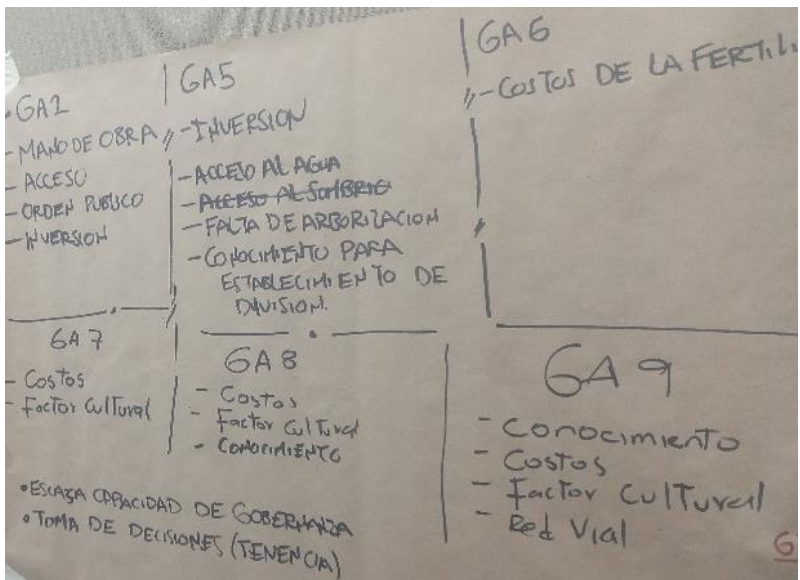 •GA2
- MANO DE OBRA
- ACCESO
- ORDEN PUBLICO
- INVERSION
GA5
- INVERSION
- ACCESO AL AGUA
- ACCESO AL SOMBRIO
- FALTA DE ARBORIZACION
- CONOCIMIENTO PARA
ESTABLECIMIENTO DE
DIVISION.
GA6
- COSTOS DE LA
GA7
- Costos
- Factor Cultural
GA8
- Costos
- Factor Cultural
- CONOCIMIENTO
GA9
- Conocimiento
- Costos
- Factor Cultural
- Red Vial
• ESCASA CAPACIDAD DE GOBERNANZA
• TOMA DE DECISIONES (TENENCIA)